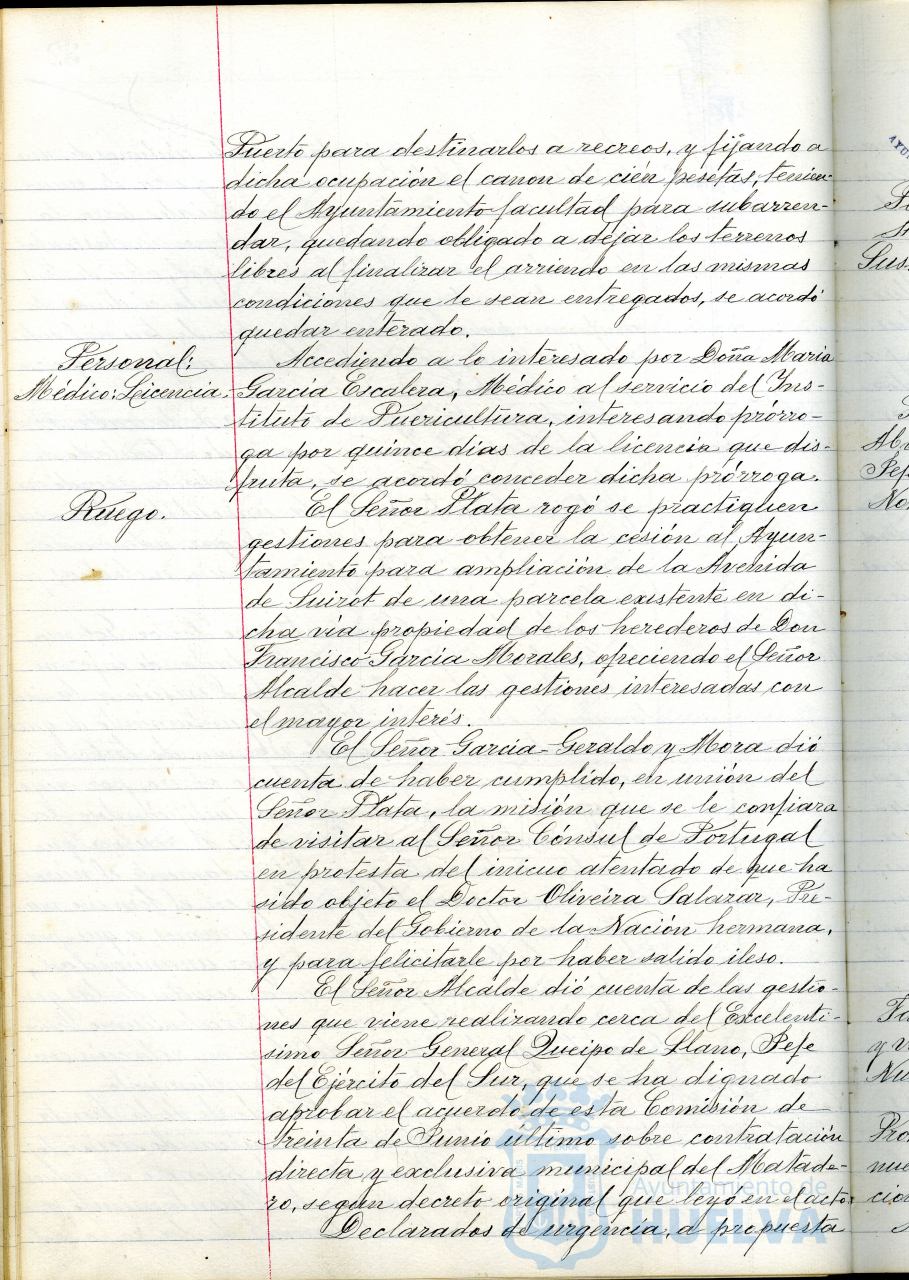 Puerto para destinarlos a recreos, y fijando a
dicha ocupación el canon de cién pesetas, tenien-
do el Ayuntamiento facultad para subarren-
dar, quedando obligado a dejar los terrenos
libres al finalizar el arriendo en las mismas
condiciones que le sean entregados, se acordó
quedar enterado.
Personal:
Médico: Licencia.
Accediendo a lo interesado por Doña Maria
Garcia Escalera, Médico al servicio del Ins-
tituto de Puericultura, interesando prórro-
ga por quince dias de la licencia que dis-
fruta, se acordó conceder dicha prórroga.
Ruego.
El Señor Plata rogó se practiquen
gestiones para obtener la cesión al Ayun-
tamiento para ampliación de la Avenida
de Guirot de una parcela existente en di-
cha via propiedad de los herederos de Don
Francisco Garcia Morales, ofreciendo el Señor
Alcalde hacer las gestiones interesadas con
el mayor interés.
El Señor Garcia-Geraldo y Mora dió
cuenta de haber cumplido, en unión del
Señor Plata, la misión que se le confiara
de visitar al Señor Cónsul de Portugal
en protesta del inicuo atentado de que ha
sido objeto el Doctor Oliveira Salazar, Pre-
sidente del Gobierno de la Nación hermana,
y para felicitarle por haber salido ileso.
El Señor Alcalde dió cuenta de las gestio-
nes que viene realizando cerca del Excelenti-
simo Señor General Queipo de Llano, Jefe
del Ejército del Sur, que se ha dignado
aprobar el acuerdo de esta Comisión de
treinta de Junio último sobre contratación
directa y exclusiva municipal del Matade-
ro, segun decreto original que leyó en el acto.
Declarados de urgencia, a propuesta
Ayuntamiento de
HUELVA